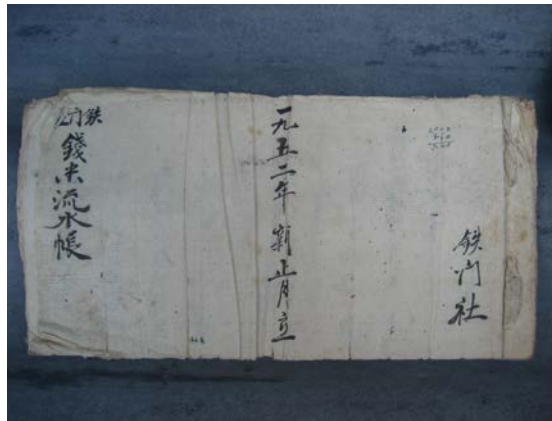 鉄门社
一九五二年 新正月立
鉄门
錢米流水帳